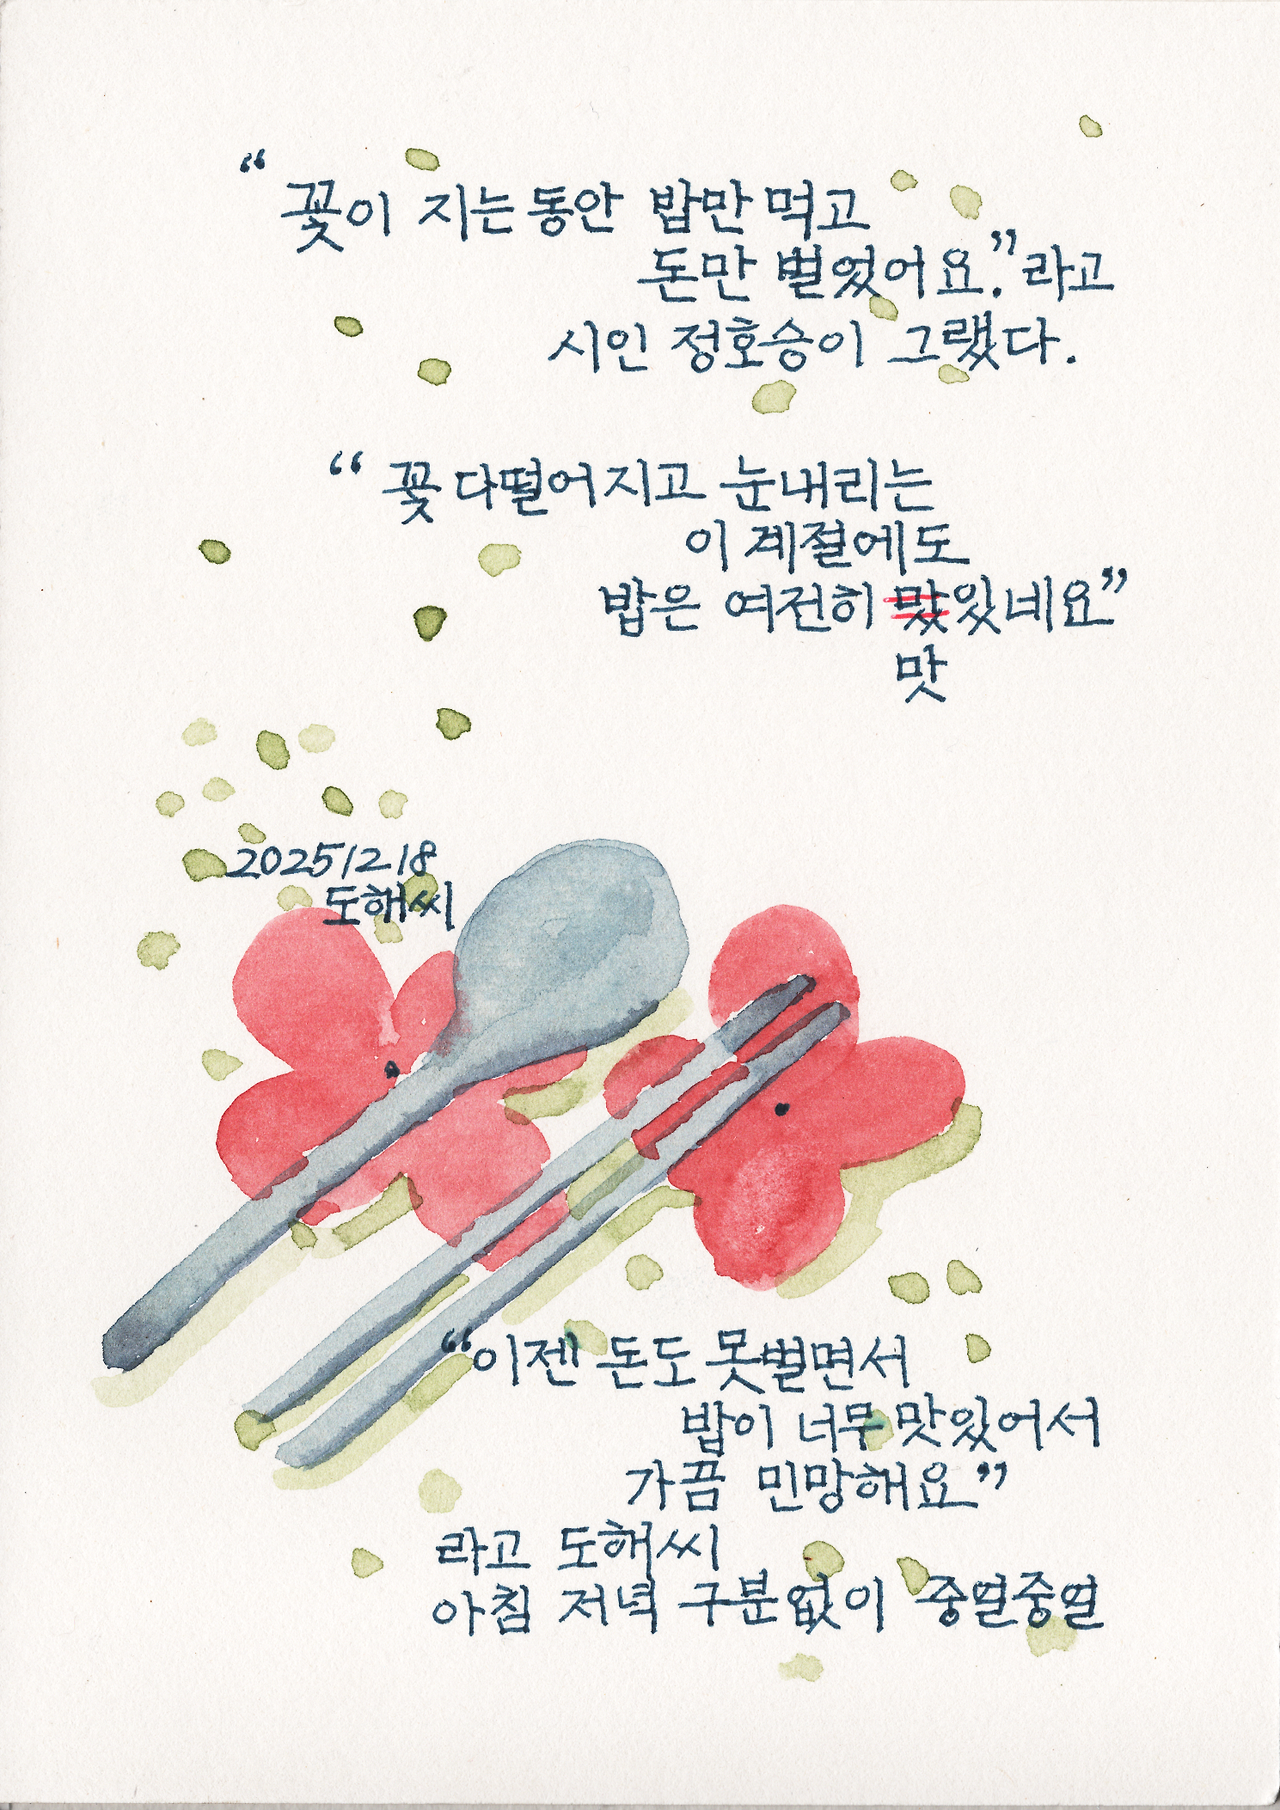 “꽃이 지는 동안 밥만 먹고
돈만 벌었어요.”라고
시인 정호승이 그랬다.
“꽃 다떨어지고 눈내리는
이 계절에도
밥은 여전히 맜있네요”
맛
20251218
도해씨
“이젠 돈도 못벌면서
밥이 너무 맛있어서
가끔 민망해요”
라고 도해씨
아침 저녁 구분없이 중얼중얼